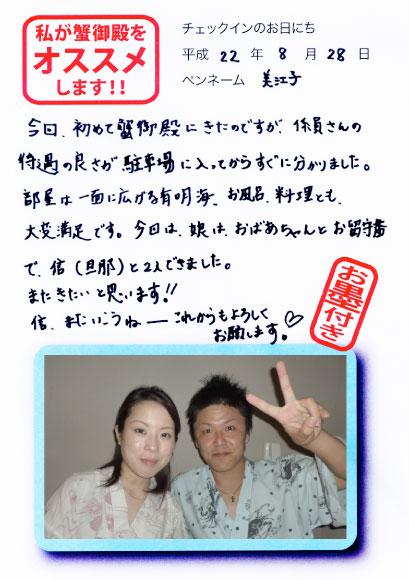 私が蟹御殿を
オススメ
します!!
チェックインのお日にち
平成 22 年 8 月 28 日
ペンネーム 美江子
今回、初めて蟹御殿にきたのですが、係員さんの
待遇の良さが駐車場に入ってからすぐに分かりました。
部屋は一面に広がる有明海、お風呂、料理とも、
大変満足です。今日は、娘は、おばあちゃんとお留守番
で、信（旦那）と2人できました。
またきたいと思います!!
信、またいこうね ― これからもよろしく
お願します。♡
お墨付き